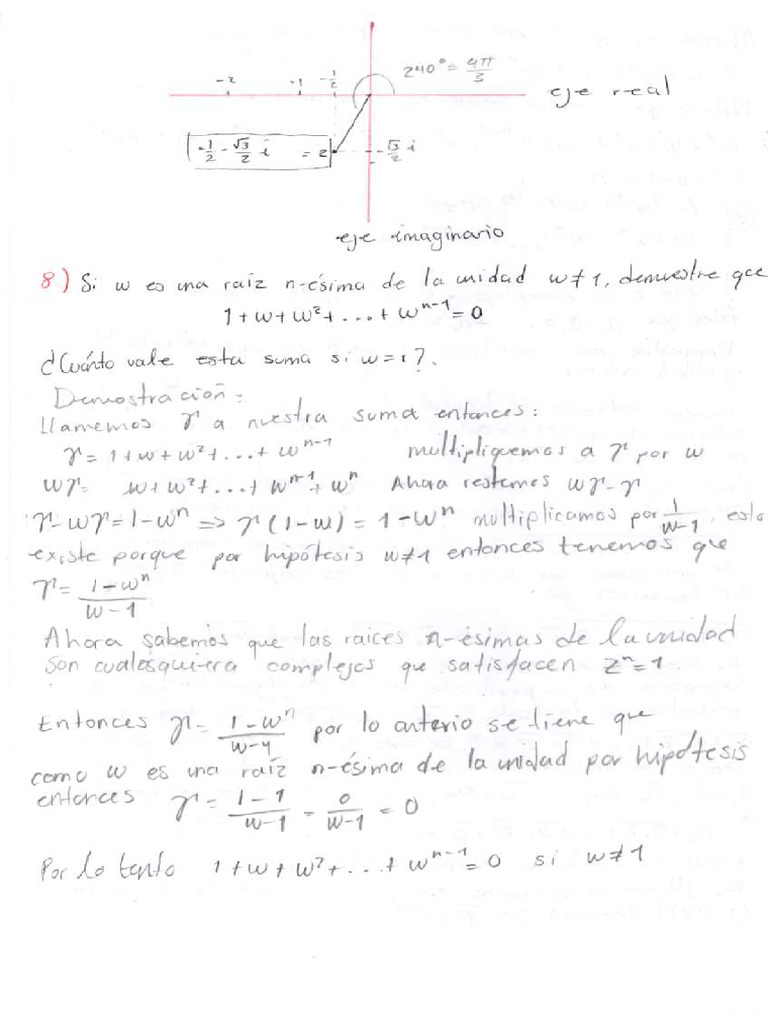 240° = 4π/3
-2 -1 -1/2
eje real
-1/2 - √3/2 i = z
-√3/2 i
eje imaginario
8) Si w es una raíz n-ésima de la unidad w≠1, demuestre que
1+w+w²+...+w^{n-1}=0
¿Cuánto vale esta suma si w=1?.
Demostración:
Llamemos r a nuestra suma entonces:
r=1+w+w²+...+w^{n-1} multipliquemos a r por w
wr= w+w²+...+w^{n-1}+w^n Ahora restemos wr-r
r-wr=1-w^n ⇒ r(1-w)=1-w^n multiplicamos por 1/(w-1), esto
existe porque por hipótesis w≠1 entonces tenemos que
r=(1-w^n)/(w-1)
Ahora sabemos que las raices n-ésimas de la unidad
son cualesquiera complejos que satisfacen z^n=1.
Entonces r=(1-w^n)/(w-1) por lo anterio se tiene que
como w es una raíz n-ésima de la unidad por hipótesis
entonces r=(1-1)/(w-1)=0/(w-1)=0
Por lo tanto 1+w+w²+...+w^{n-1}=0 si w≠1